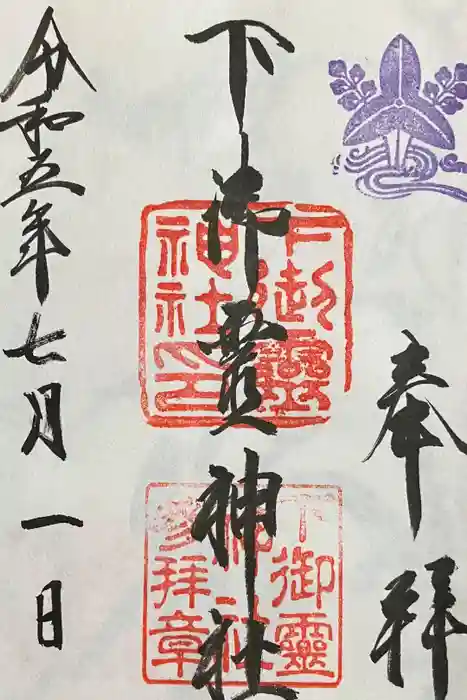 奉拝
下御靈神社
下御靈神社印
下御靈神社参拝章
令和五年七月一日